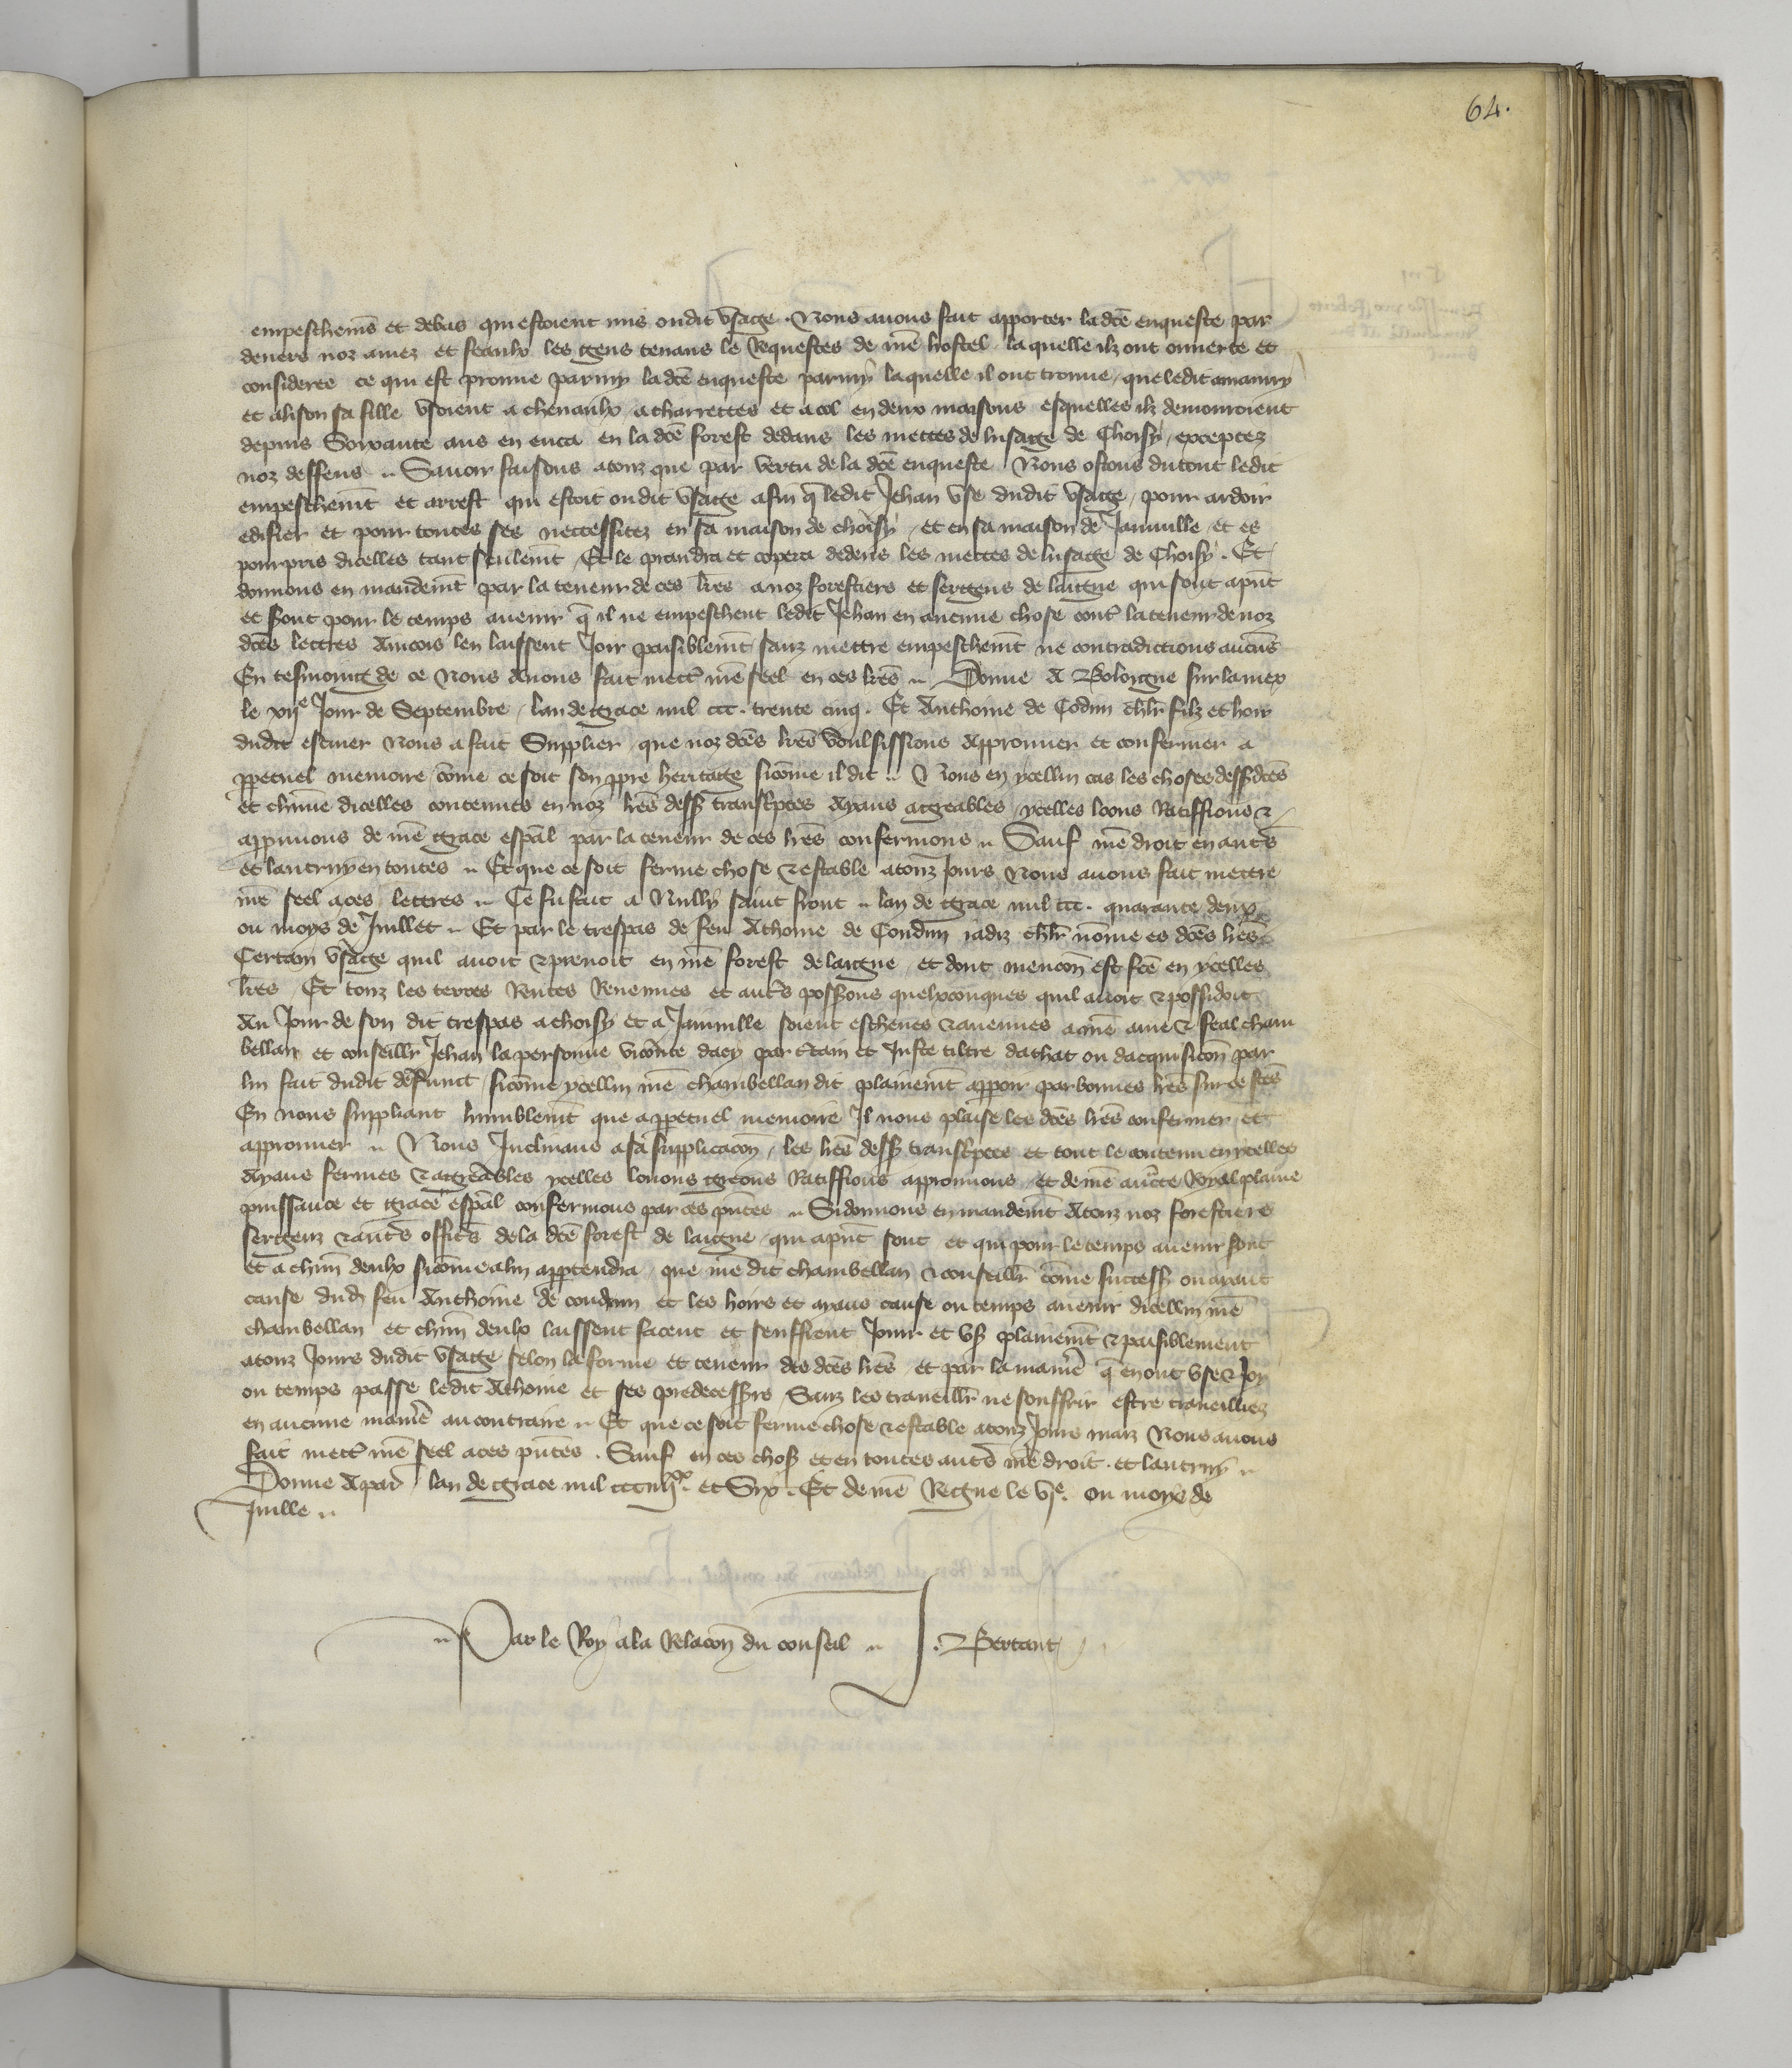 64.
empeschemēs et debas qui estoient mis oudit usaige. Nous avons fait apporter la dcē enqueste par
devers noz amez et feaulx les gens tenans le Requestes de nrē hostel laquelle ilz ont ouverte et
consideree ce qui est prouve parmy la dcē enqueste parmy laquelle il ont trouve, que ledit amaury
et alison sa fille usoient a chevaulx a charrettes et a col en deux maisons esquelles ilz demouroient
depuis Soixante ans en enca en la dcē forest dedans les mettes de lusaige de Choisy, exceptez
noz deffens. Savoir faisons a touz que par vertu de la dcē enqueste Nous ostons du tout ledit
empeschemt et arrest qui estoit oudit usaige afin q̄ ledit Jehan use dudit usaige, pour ardoir
edifier et pour toutes ses neccessitez en sa maison de choisy, et en sa maison de Janville et es
pourpris dicelles tant seulemt Et le prandra et copera dedens les mettes de lusaige de Choisy. Et
donnons en mandemt par la teneur de ces lrēs a noz forestiers et sergens de laigue qui sont apnt
et sont pour le temps avenir q̄ il ne empeschent ledit Jehan en aucune chose cont' la teneur de noz
dcēs lettres Aincois len laissent Joir paisiblemt sanz mettre empeschemt ne contradictions aucūs
En tesmoing de ce Nous Avons fait mett' nrē seel en ces lrēs. Donne A Boloigne sur la mer
le xiie Jour de Septembre, lan de grace mil ccc. trente cinq. Et Anthoine de Codun chlr filz et hoir
dudit escuier Nous a fait Supplier, que noz dcēs lrēs Voulsissions Approuver et confermer a
ppetuel memoire, cōme ce soit son ppre heritaige sicōme il dit. Nous en ycellui cas les choses dessdcēs
et chūne dicelles contenues en noz lrēs dess transcptes Ayans agreables, ycelles loons Ratiffions &
appvuons de nrē grace esp̄al par la teneur de ces lrēs confermons. Sauf nrē droit en aut's
et lautruy en toutes. Et que ce soit ferme chose & estable a touz jours Nous avons fait mettre
nrē seel a ces lettres. Ce fu fait a Nully saint front. lan de grace mil ccc. quarante deux
ou moys de Juillet. Et par le trespas de feu Athoine de Condun jadiz chlr nōme es dcēs lrēs
Certain usaige quil avoit & prenoit en nrē forest de laigue, et dont mencōn est fcē en ycelles
lrēs, Et touz les terres Rentes Revenues et aut's possons quelxconques quil avoit & possidoit
Au Jour de son dit trespas a choisy et a Janville soient escheues & avenues a nrē ame & feal cham
bellan et conseillr Jehan la personne viconte dacy par c'tain et Juste tiltre dachat ou dacquisicōn par
lui fait dudit defunct, sicōme ycellui nrē chambellan dit plainemt apparoir par bonnes lrēs sur ce fcēs
En nous suppliant humblemt que a ppetuel memoire Il nous plaise les dcēs lrēs confermer et
approuver. Nous Inclinans a sa supplicacōn, les lrēs dess transcptes et tout le contenu en ycelles
Ayans fermes & agreables ycelles louons greons Ratiffions approuvons, et de nrē auc'te Royal plaine
puissance et grace esp̄al confermons par ces pn̄tes. Si donnons en mandemt A touz noz forestiers
sergenz & aut's offic's de la dcē forest de laigue, qui apnt sont et qui pour le temps avenir sont
et a chūn deulx sicōme a lui appartendra, que nrē dit chambellan & conseillr cōme success ou aiant
cause dud feu Anthoine de condun et les hoirs et ayans cause ou temps avenir dicellui nrē
chambellan et chūn deulx laissent facent et seuffrent Jouir et us plainemt & paisiblement
a touz Jours dudit usaige selon la forme et teneur des dcēs lrēs, et par la manie q̄ en ont use & Joy
ou temps passe ledit Athoine et ses predecessrs, Sanz les traveillr ne souffrir estre traveilliez
en aucune manie au contraire. Et que ce soit ferme chose & estable a touz Jours maiz Nous avons
fait mett' nrē seel a ces pn̄tes. Sauf en ces chos et en toutes aut's nrē droit. et lautruy.
Donne A par lan de grace mil ccc iiijxx. et Six. Et de nrē Regne le vje. ou moys de
Juille.
Par le Roy a la Relacōn du conseil. J. Bertaut